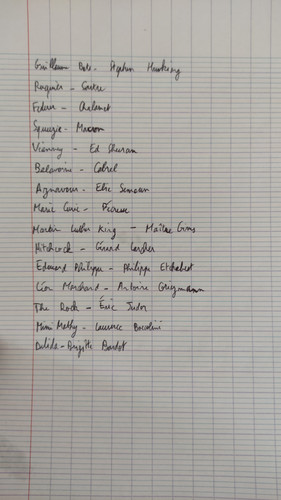 Guillaume Bats - Stephen Hawking
Requis - Sartre
Federer - Chalamet
Squeezie - Macron
Vianney - Ed Sheeran
Balavoine - Cabrel
Aznavour - Elie Semoun
Marie Curie -
Martin Luther King - Maître Gims
Hitchcock - Gérard Larcher
Edouard Philippe - Philippe Etchebest
Léon Marchand - Antoine Griezmann
The Rock - Éric Judor
Mimi Mathy - Laurence Boccolini
Dalida - Brigitte Bardot